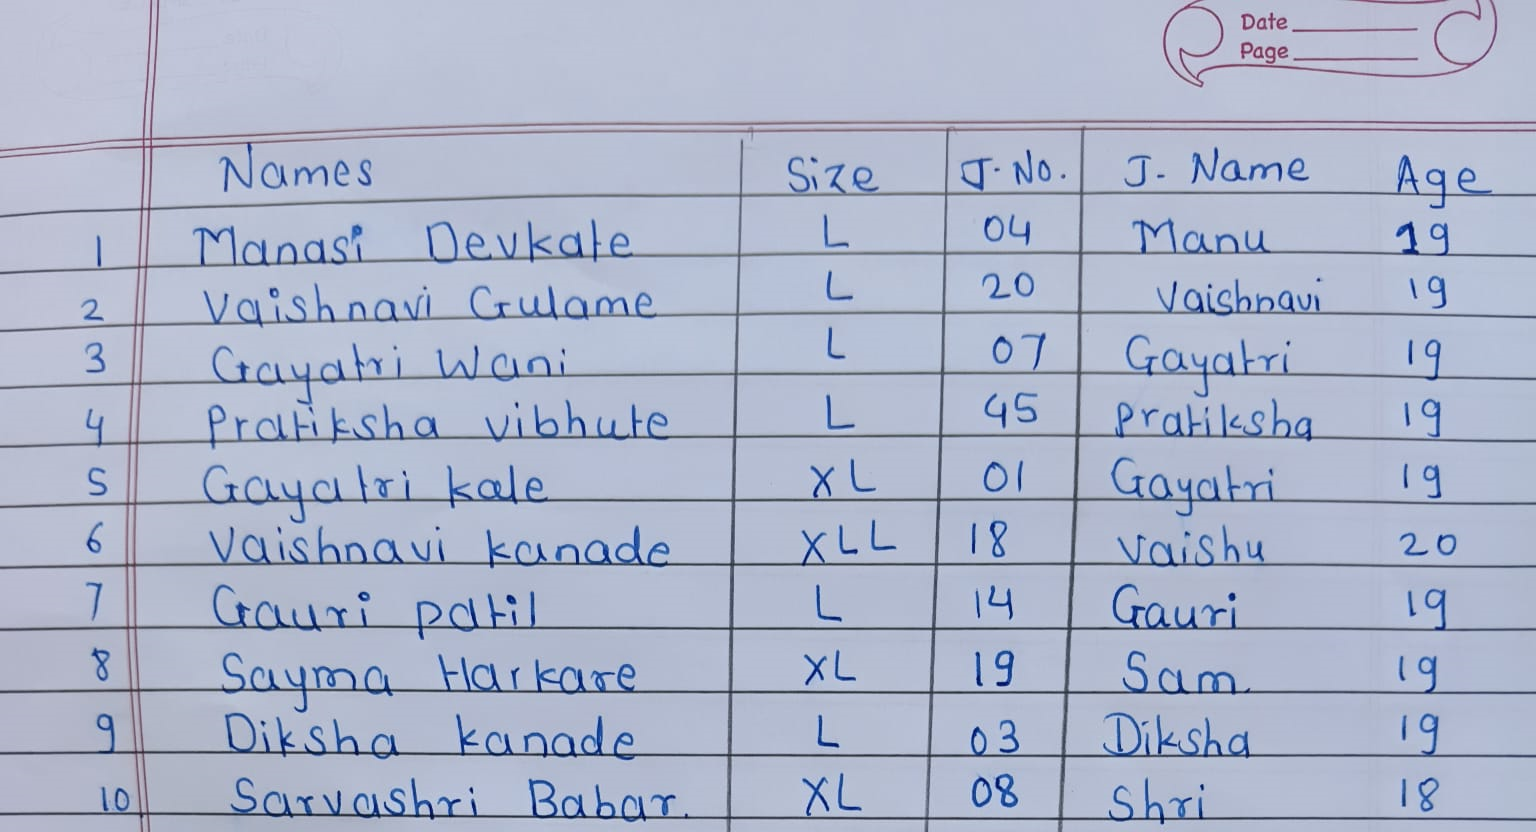 Date
Page
Names Size J. No. J. Name Age
1 Manasi Devkate L 04 Manu 19
2 Vaishnavi Gulame L 20 Vaishnavi 19
3 Gayatri Wani L 07 Gayatri 19
4 Pratiksha vibhute L 45 Pratiksha 19
5 Gayatri kale XL 01 Gayatri 19
6 Vaishnavi kanade XLL 18 Vaishu 20
7 Gauri patil L 14 Gauri 19
8 Sayma Harkare XL 19 Sam. 19
9 Diksha kanade L 03 Diksha 19
10 Sarvashri Babar. XL 08 Shri 18